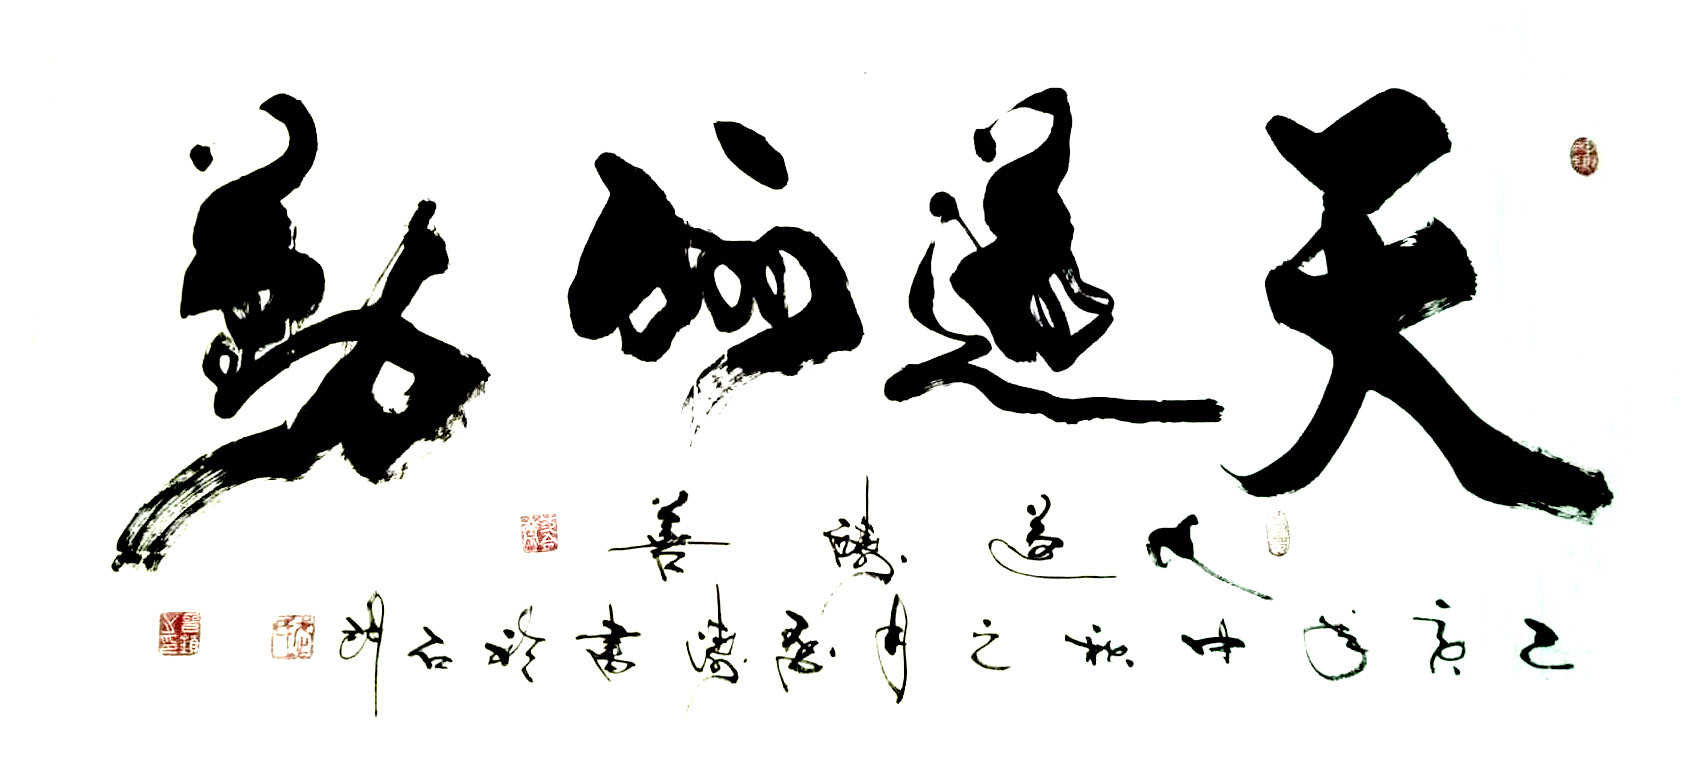 天道酬勤
人道酬善
己亥年中秋之月 濤書於石